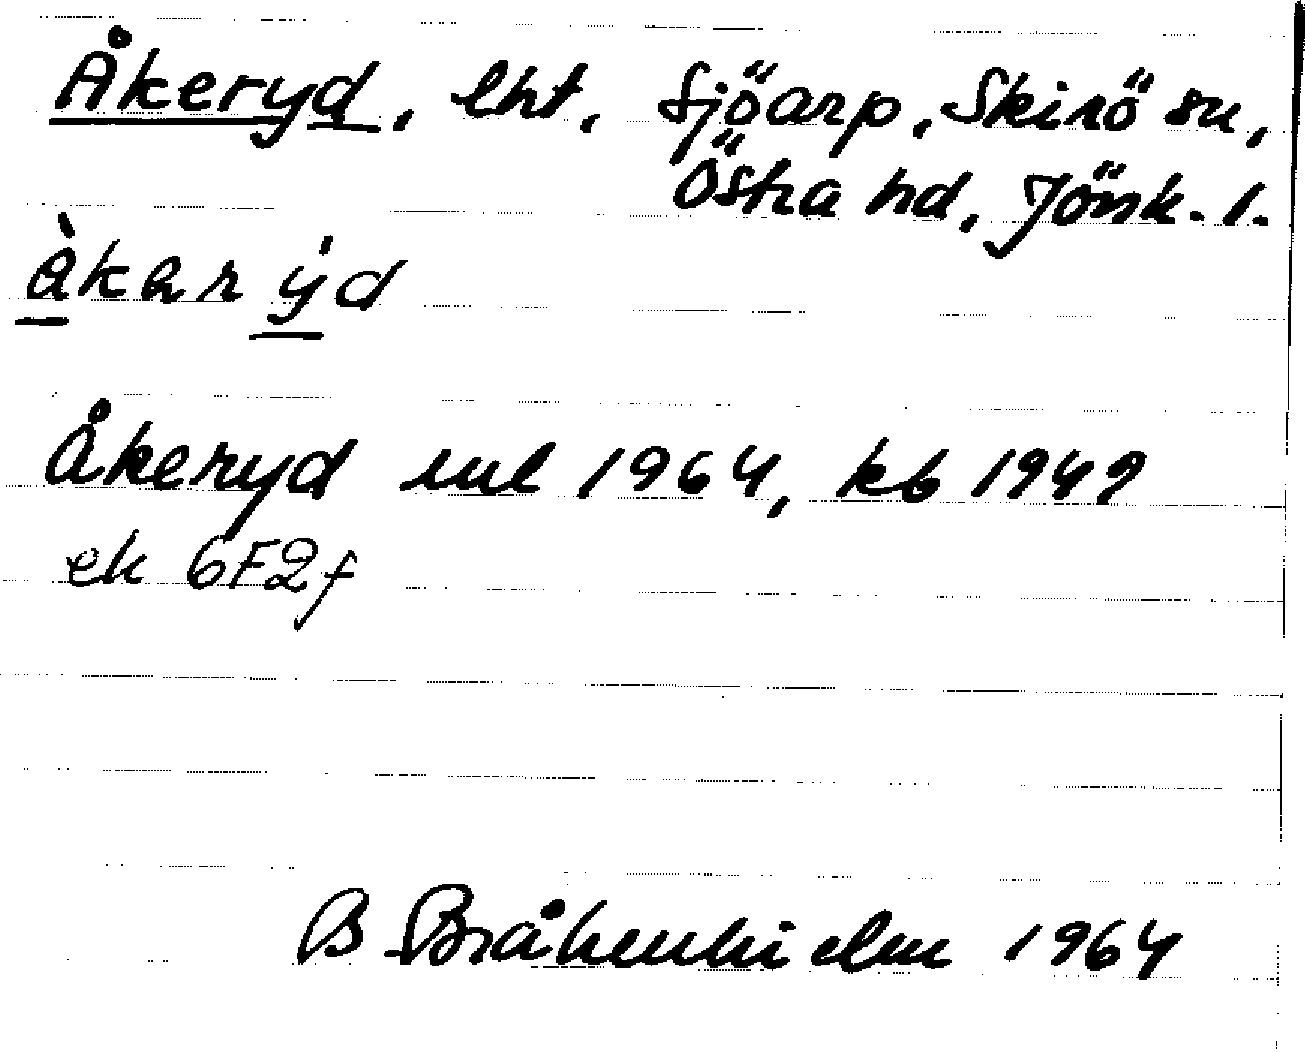 Åkeryd, lht, Sjöarp, Skirö sn,
Östra hd, Jönk. l.
àkarýd
Åkeryd uul 1964, kb 1949
ek 6F2f
B Bråkenhielm 1964